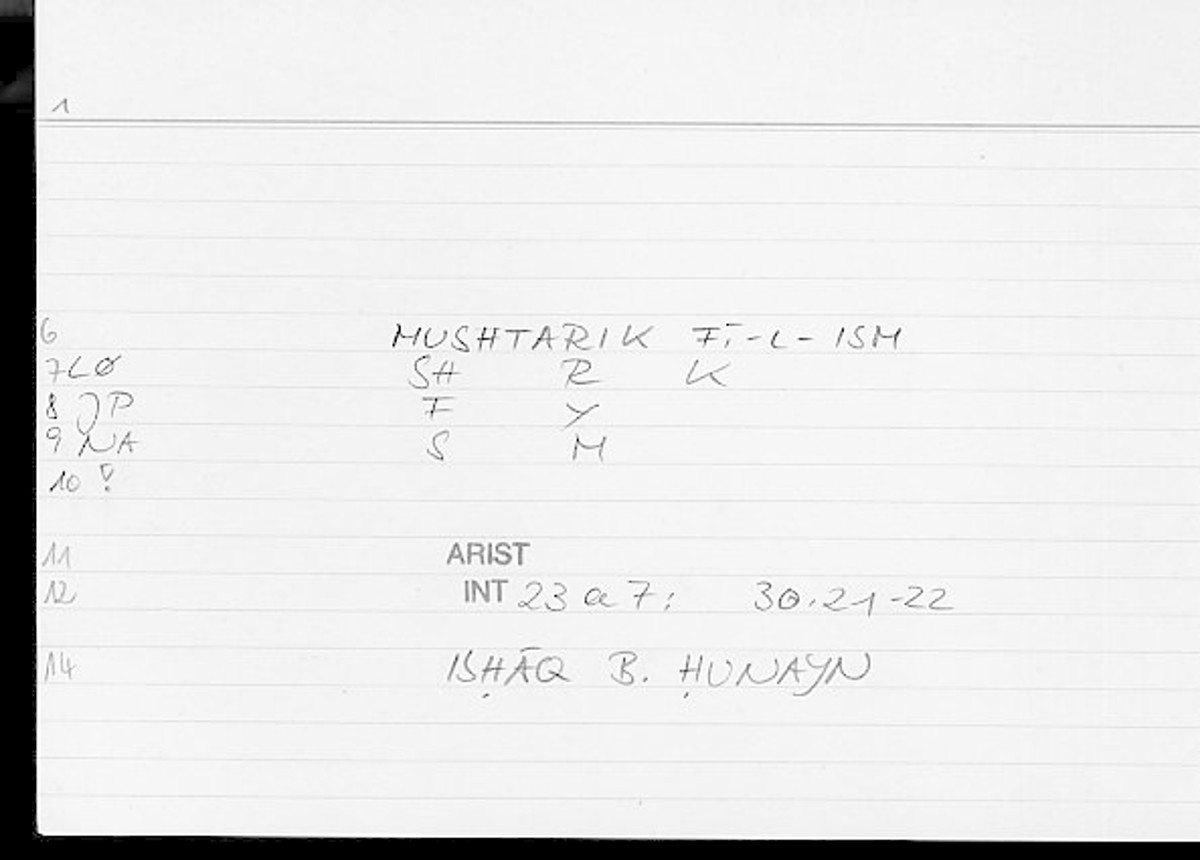 1
6 MUSHTARIK FĪ-L-ISM
7 LØ SH R K
8 JP F Y
9 NA S M
10
11 ARIST
12 INT 23 a 7; 30.21-22
14 ISḤĀQ B. ḤUNAYN